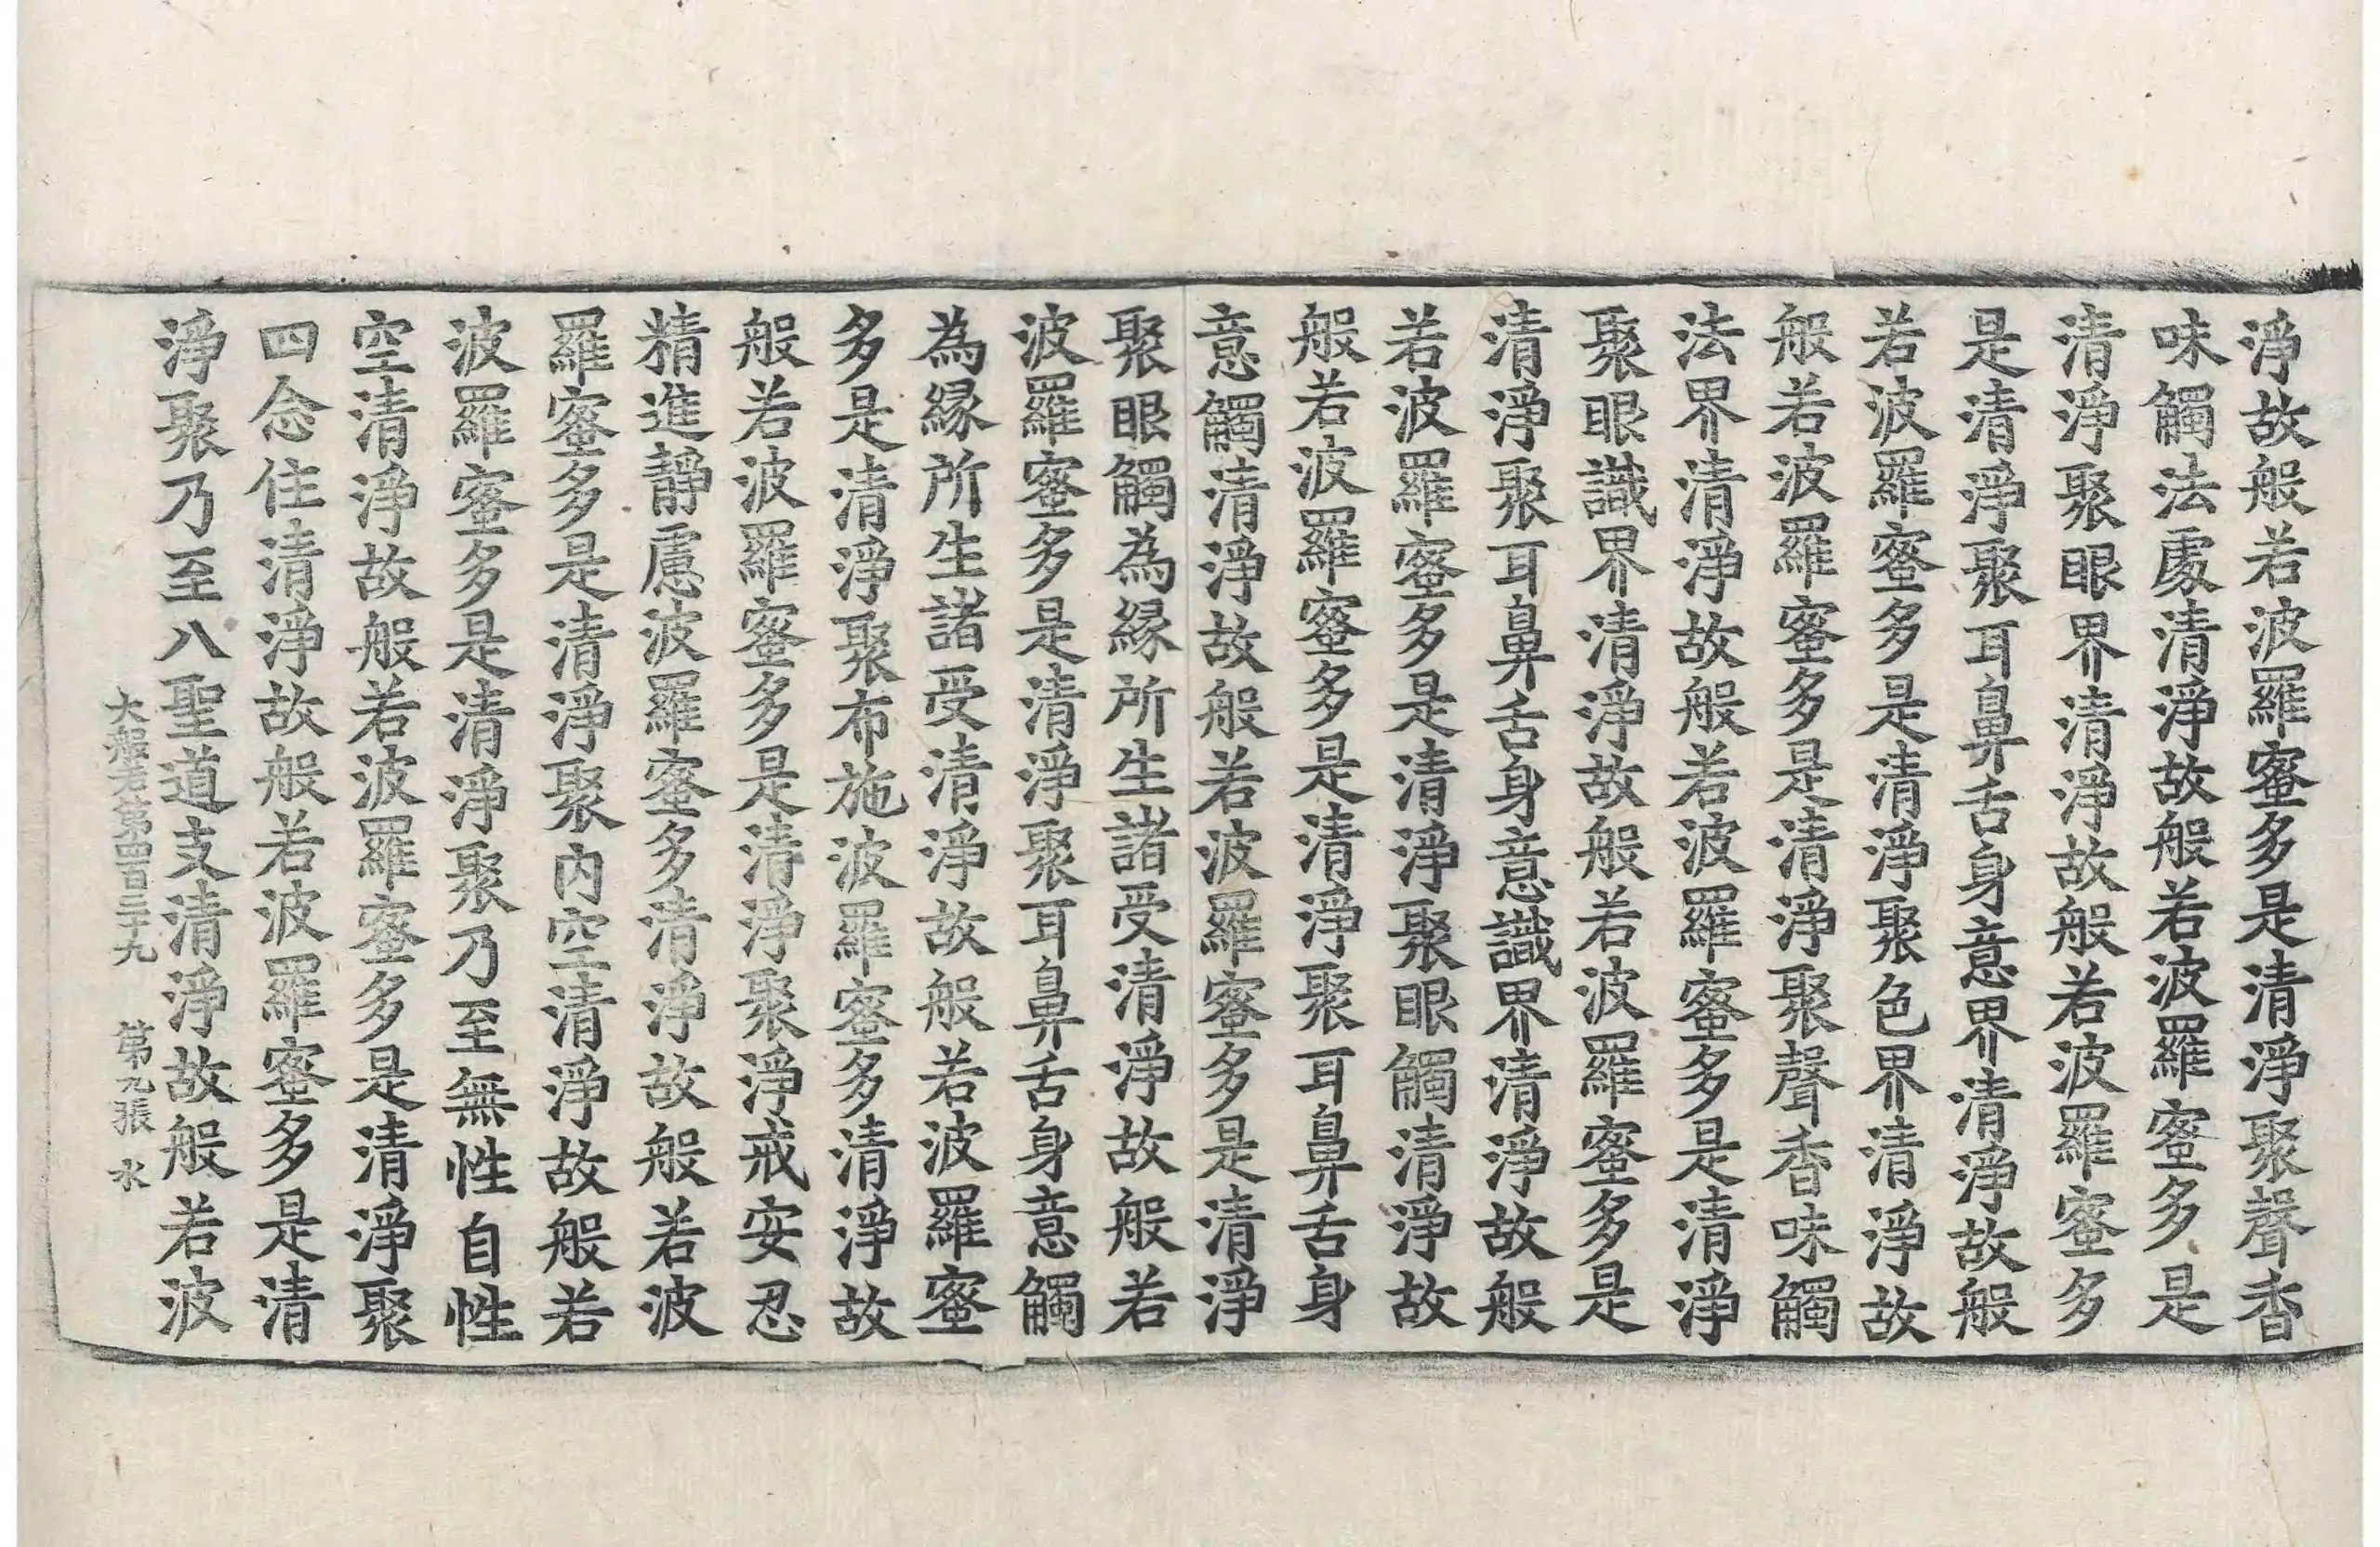 淨故般若波羅蜜多是清淨聚聲香
味觸法處清淨故般若波羅蜜多是
清淨聚眼界清淨故般若波羅蜜多
是清淨聚耳鼻舌身意界清淨故般
若波羅蜜多是清淨聚色界清淨故
般若波羅蜜多是清淨聚聲香味觸
法界清淨故般若波羅蜜多是清淨
聚眼識界清淨故般若波羅蜜多是
清淨聚耳鼻舌身意識界清淨故般
若波羅蜜多是清淨聚眼觸清淨故
般若波羅蜜多是清淨聚耳鼻舌身
意觸清淨故般若波羅蜜多是清淨
聚眼觸為緣所生諸受清淨故般若
波羅蜜多是清淨聚耳鼻舌身意觸
為緣所生諸受清淨故般若波羅蜜
多是清淨聚布施波羅蜜多清淨故
般若波羅蜜多是清淨聚淨戒安忍
精進靜慮波羅蜜多清淨故般若波
羅蜜多是清淨聚內空清淨故般若
波羅蜜多是清淨聚乃至無性自性
空清淨故般若波羅蜜多是清淨聚
四念住清淨故般若波羅蜜多是清
淨聚乃至八聖道支清淨故般若波
大般若第四百二十九 第九張 水